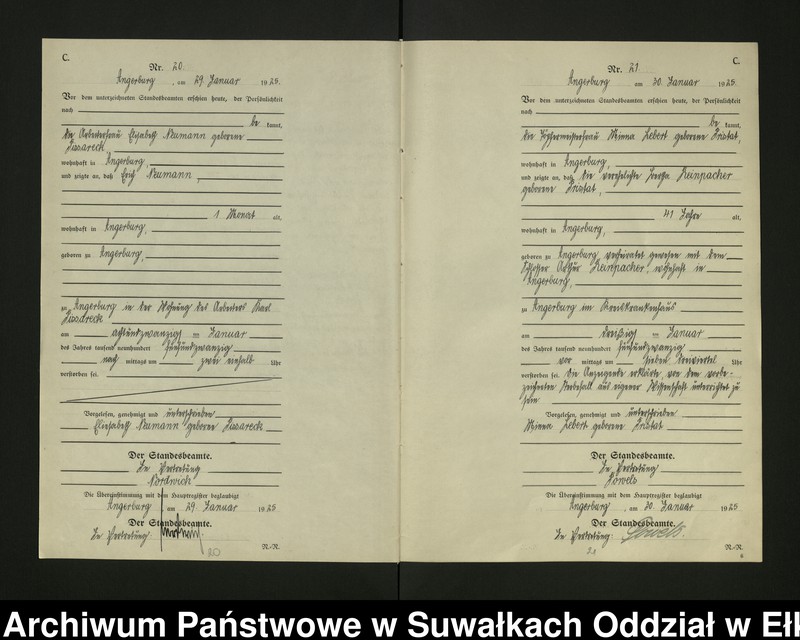 C.
Nr. 20.
Angerburg, am 29. Januar 1925.
Vor dem unterzeichneten Standesbeamten erschien heute, der Persönlichkeit
nach
be kannt,
die Arbeiterfrau Elisabeth Neumann geborene
Lasareck,
wohnhaft in Angerburg,
und zeigte an, daß Erich Neumann,
1 Monat alt,
wohnhaft in Angerburg,
geboren zu Angerburg,
zu Angerburg in der Wohnung des Arbeiters Karl
Lasareck
am achtundzwanzigsten Januar
des Jahres tausend neunhundert fünfundzwanzig
nach mittags um zwei einhalb Uhr
verstorben sei.
Vorgelesen, genehmigt und unterschrieben
Elisabeth Neumann geborene Lasareck
Der Standesbeamte.
In Vertretung
Nordwich
Die Übereinstimmung mit dem Hauptregister beglaubigt
Angerburg, am 29. Januar 1925
Der Standesbeamte.
In Vertretung:
N.-R.
20
C.
Nr. 21
Angerburg am 30. Januar 1925.
Vor dem unterzeichneten Standesbeamten erschien heute, der Persönlichkeit
nach
be kannt,
die Minna Lebert geborene Pristat,
wohnhaft in Angerburg,
und zeigte an, daß die verehelichte Reinpacher
geborene Pristat,
41 Jahre alt,
wohnhaft in Angerburg,
geboren zu Angerburg, verheiratet gewesen mit dem
Schlosser Arthur Reinpacher, wohnhaft in
Angerburg,
zu Angerburg im Kreiskrankenhaus
am dreißigsten Januar
des Jahres tausend neunhundert fünfundzwanzig
vor mittags um sieben dreiviertel Uhr
verstorben sei. Die Anzeigende erklärte, von dem vorbe-
zeichneten Sterbefall aus eigener Wissenschaft unterrichtet zu
sein
Vorgelesen, genehmigt und unterschrieben
Minna Lebert geborene Pristat
Der Standesbeamte.
In Vertretung
Powels
Die Übereinstimmung mit dem Hauptregister beglaubigt
Angerburg, am 30. Januar 1925
Der Standesbeamte.
In Vertretung: Powels.
N.-R.
21
6
Archiwum Państwowe w Suwałkach Oddział w Ełk